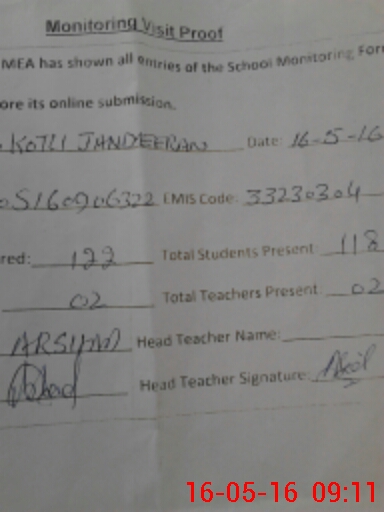 Monitoring Visit Proof
MEA has shown all entries of the School Monitoring For
ore its online submission.
KOTLI JANDEERAN Date: 16-5-16
05160906322 EMIS Code: 33230304
red: 122 Total Students Present: 118
02 Total Teachers Present: 02
ARSHAD Head Teacher Name:
Head Teacher Signature:
16-05-16 09:11